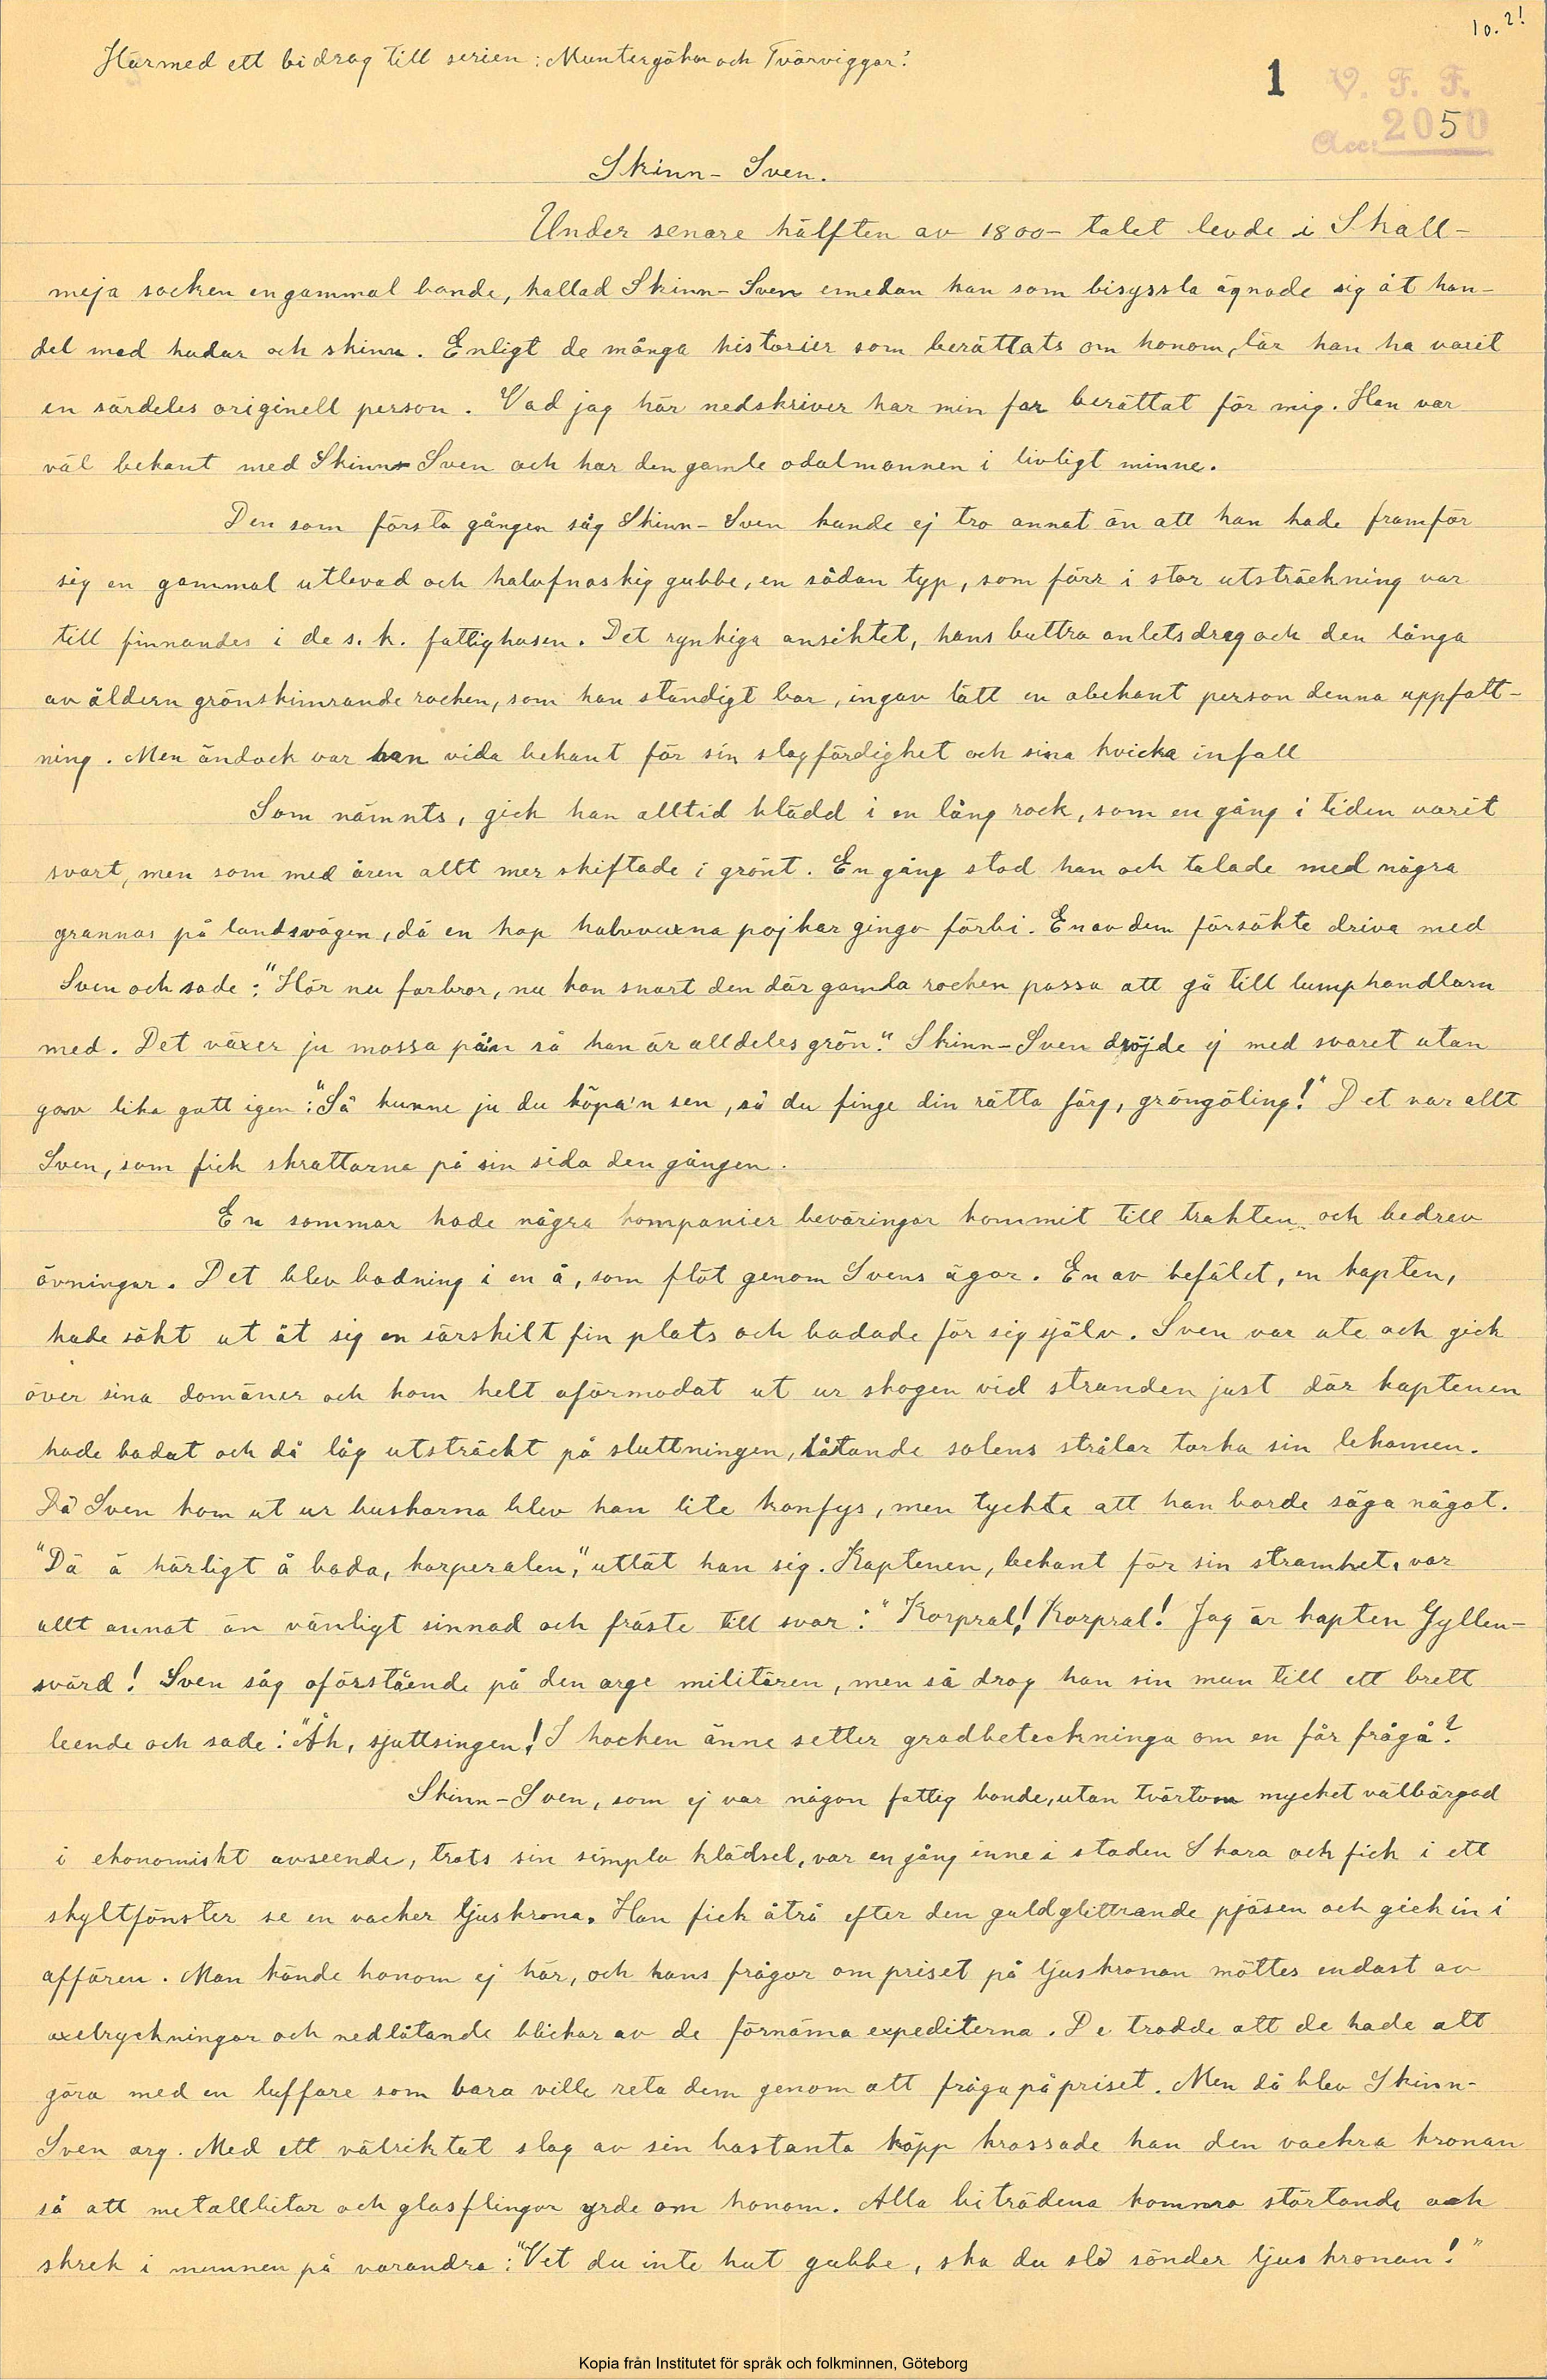 10.2!
Härmed ett bidrag till serien: Muntergökar och Tvärviggar:
1
V. F. F.
Acc: 2050
Skinn-Sven.
Under senare hälften av 1800-talet levde i Skall-
meja socken en gammal bonde, kallad Skinn-Sven emedan han som bisyssla ägnade sig åt han-
del med hudar och skinn. Enligt de många historier som berättats om honom, lär han ha varit
en särdeles originell person. Vad jag här nedskriver har min far berättat för mig. Han var
väl bekant med Skinn-Sven och har den gamle odalmannen i livligt minne.
Den som första gången såg Skinn-Sven kunde ej tro annat än att han hade framför
sig en gammal utlevad och halvfnaskig gubbe, en sådan typ, som förr i stor utsträckning var
till finnandes i de s. k. fattighusen. Det rynkiga ansiktet, hans buttra anletsdrag och den långa
av åldern grönskimrande rocken, som han ständigt bar, ingav lätt en obekant person denna uppfatt-
ning. Men ändock var han vida bekant för sin slagfärdighet och sina kvicka infall
Som nämnts, gick han alltid klädd i en lång rock, som en gång i tiden varit
svart, men som med åren allt mer skiftade i grönt. En gång stod han och talade med några
grannar på landsvägen, då en hop halvvuxna pojkar gingo förbi. En av dem försökte driva med
Sven och sade: "Hör nu farbror, nu kan snart den där gamla rocken passa att gå till lumphandlarn
med. Det växer ju mossa på'n så han är alldeles grön." Skinn-Sven dröjde ej med svaret utan
gav lika gott igen: "Så kunne ju du köpa'n sen, så du finge din rätta färg, gröngöling!" Det var allt
Sven, som fick skrattarna på sin sida den gången.
En sommar hade några kompanier beväringar kommit till trakten och bedrev
övningar. Det blev badning i en å, som flöt genom Svens ägor. En av befälet, en kapten,
hade sökt ut åt sig en särskilt fin plats och badade för sig själv. Sven var ute och gick
över sina domäner och kom helt oförmodat ut ur skogen vid stranden just där kaptenen
hade badat och då låg utsträckt på sluttningen, låtande solens strålar torka sin lekamen.
Då Sven kom ut ur buskarna blev han lite konfys, men tyckte att han borde säga något.
"Dä ä härligt å bada, korperalen," utlät han sig. Kaptenen, bekant för sin stramhet, var
allt annat än vänligt sinnad och fräste till svar: "Korpral! Korpral! Jag är kapten Gyllen-
svärd! Sven såg oförstående på den arge militären, men så drog han sin mun till ett brett
leende och sade: "Åh, sjuttsingen! I hocken änne setter gradbeteckninga om en får frågå?
Skinn-Sven, som ej var någon fattig bonde, utan tvärtom mycket välbärgad
i ekonomiskt avseende, trots sin simpla klädsel, var en gång inne i staden Skara och fick i ett
skyltfönster se en vacker ljuskrona. Han fick åtrå efter den guldglittrande pjäsen och gick in i
affären. Man kände honom ej här, och hans frågor om priset på ljuskronan möttes endast av
axelryckningar och nedlåtande blickar av de förnäma expediterna. De trodde att de hade att
göra med en luffare som bara ville reta dem genom att fråga på priset. Men då blev Skinn-
Sven arg. Med ett välriktat slag av sin bastanta käpp krossade han den vackra kronan
så att metallbitar och glasflingor yrde om honom. Alla biträdena kommo störtande och
skrek i munnen på varandra: "Vet du inte hut gubbe, ska du slå sönder ljuskronan!"
Kopia från Institutet för språk och folkminnen, Göteborg